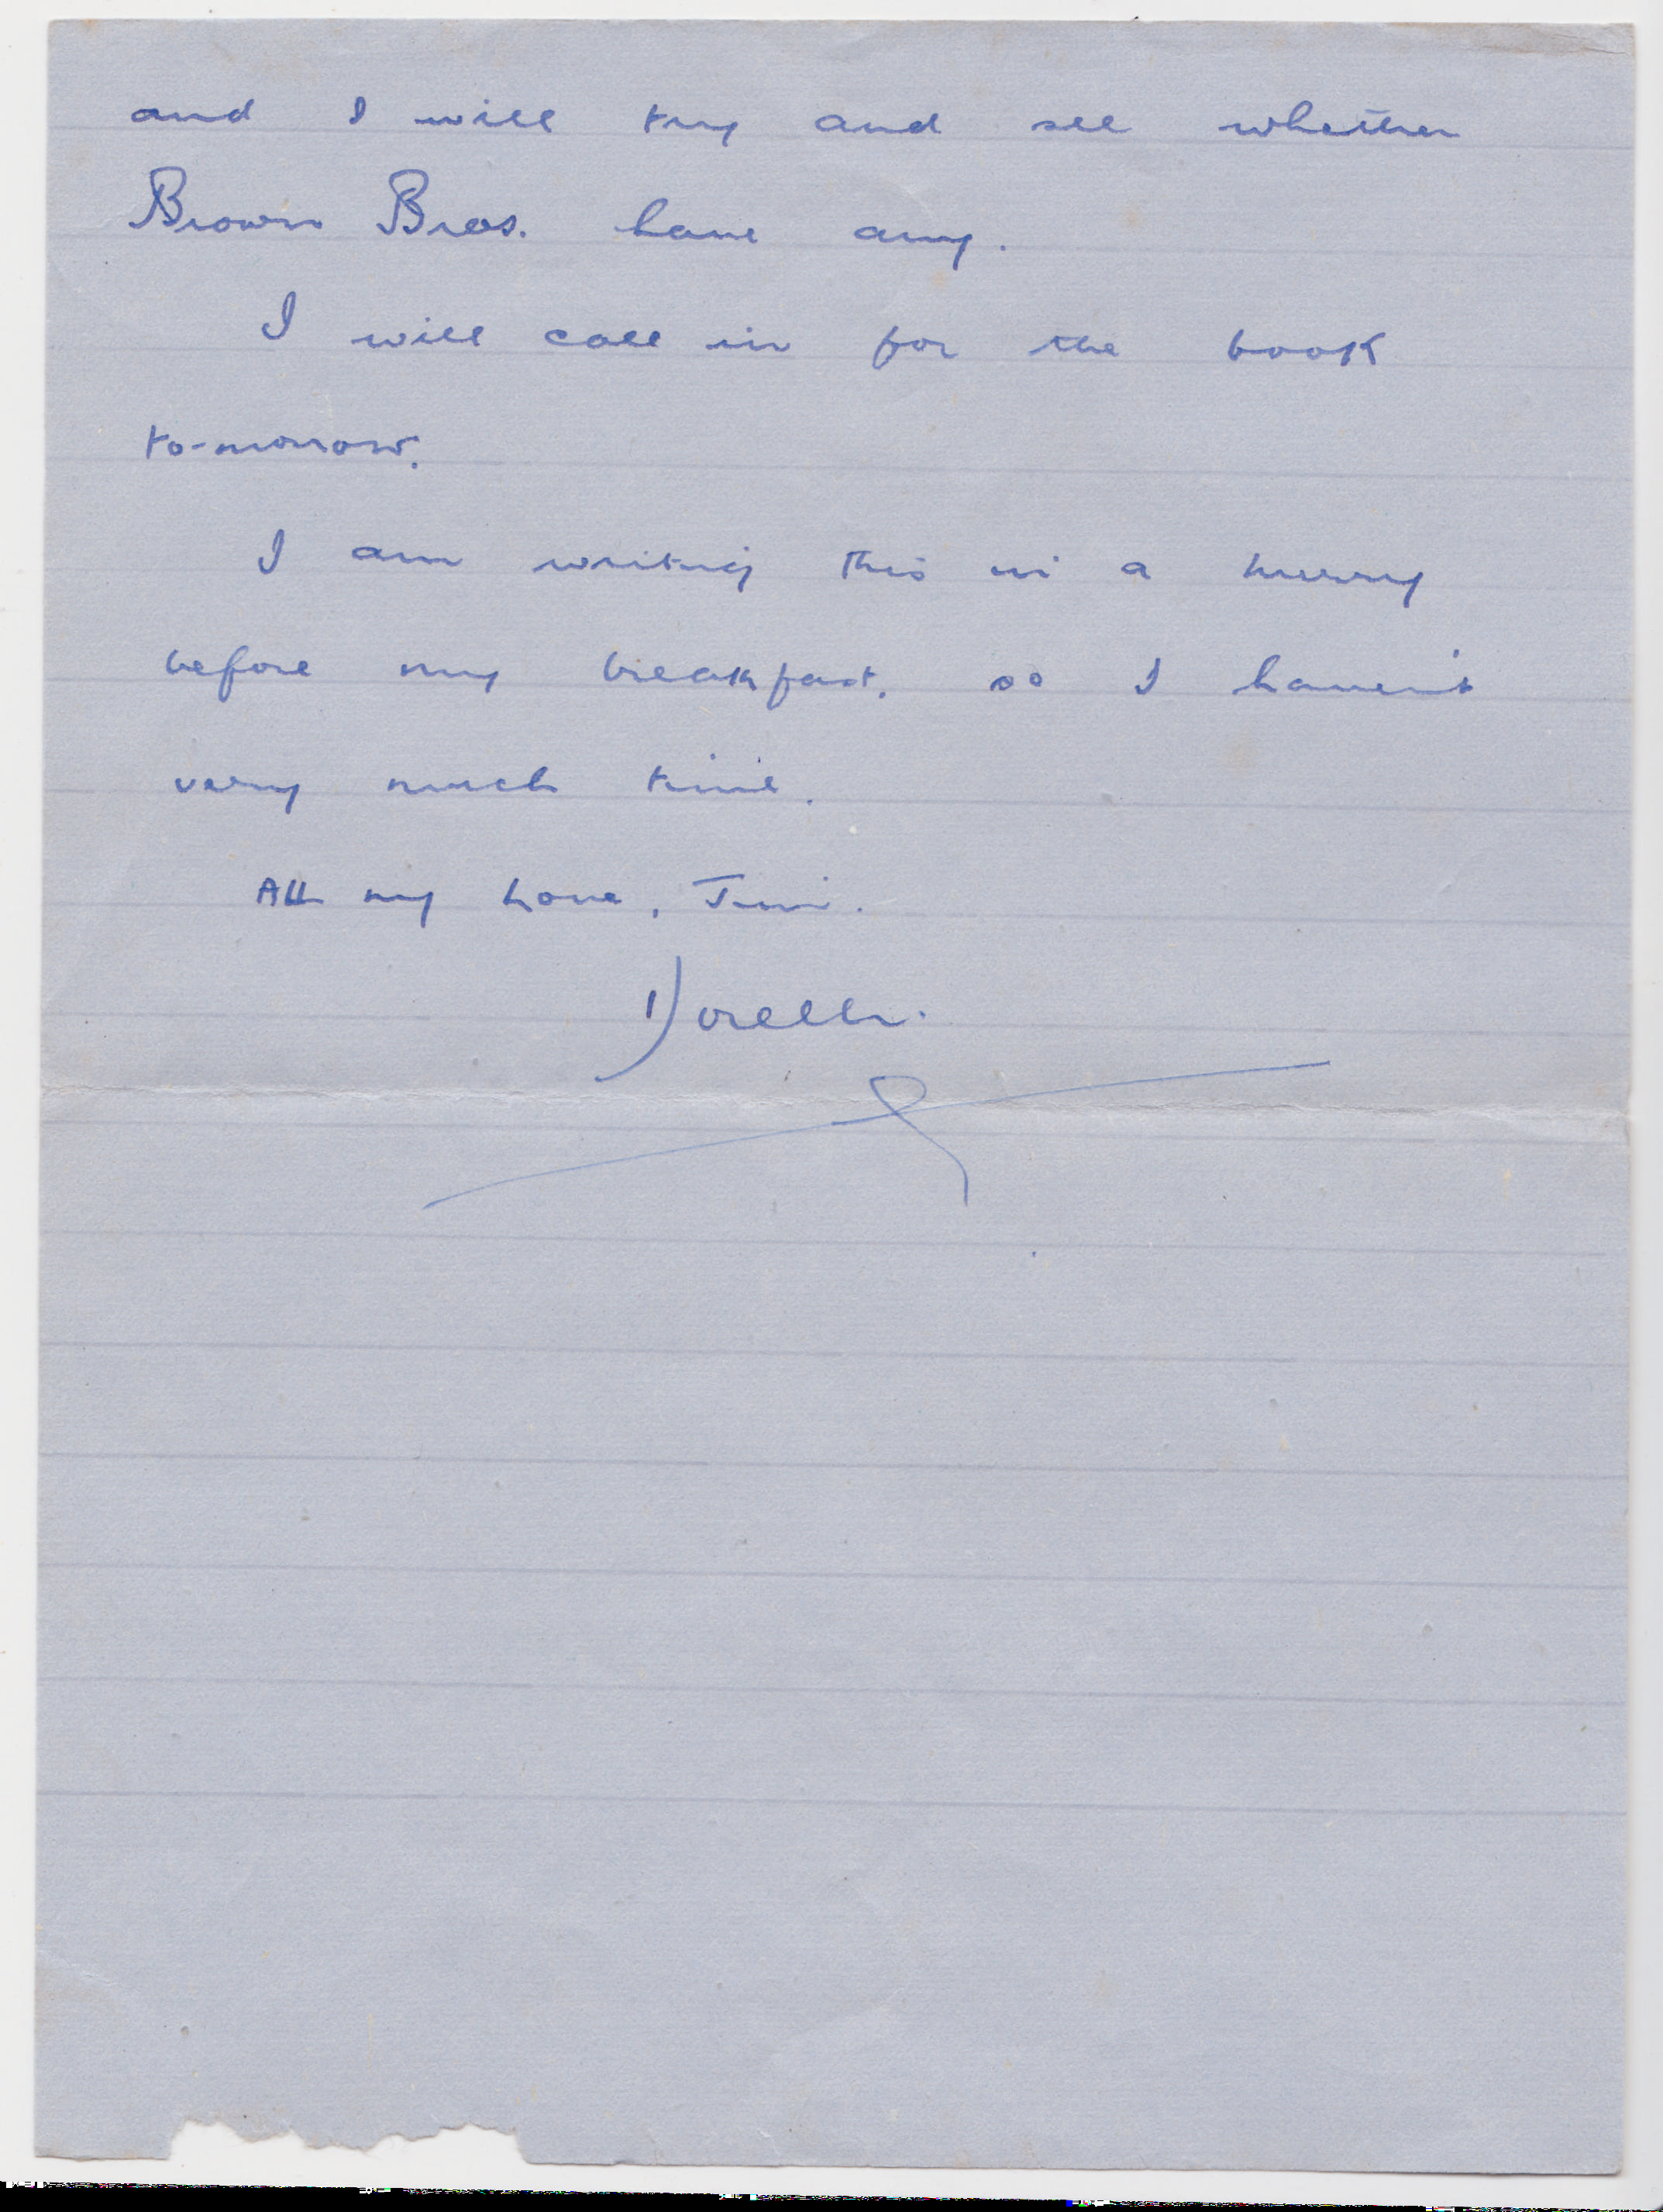 and I will try and see whether
Brown Bros. have any.
I will call in for the book
to-morrow.
I am writing this in a hurry
before my breakfast, so I haven't
very much time.
All my love, Jimi.